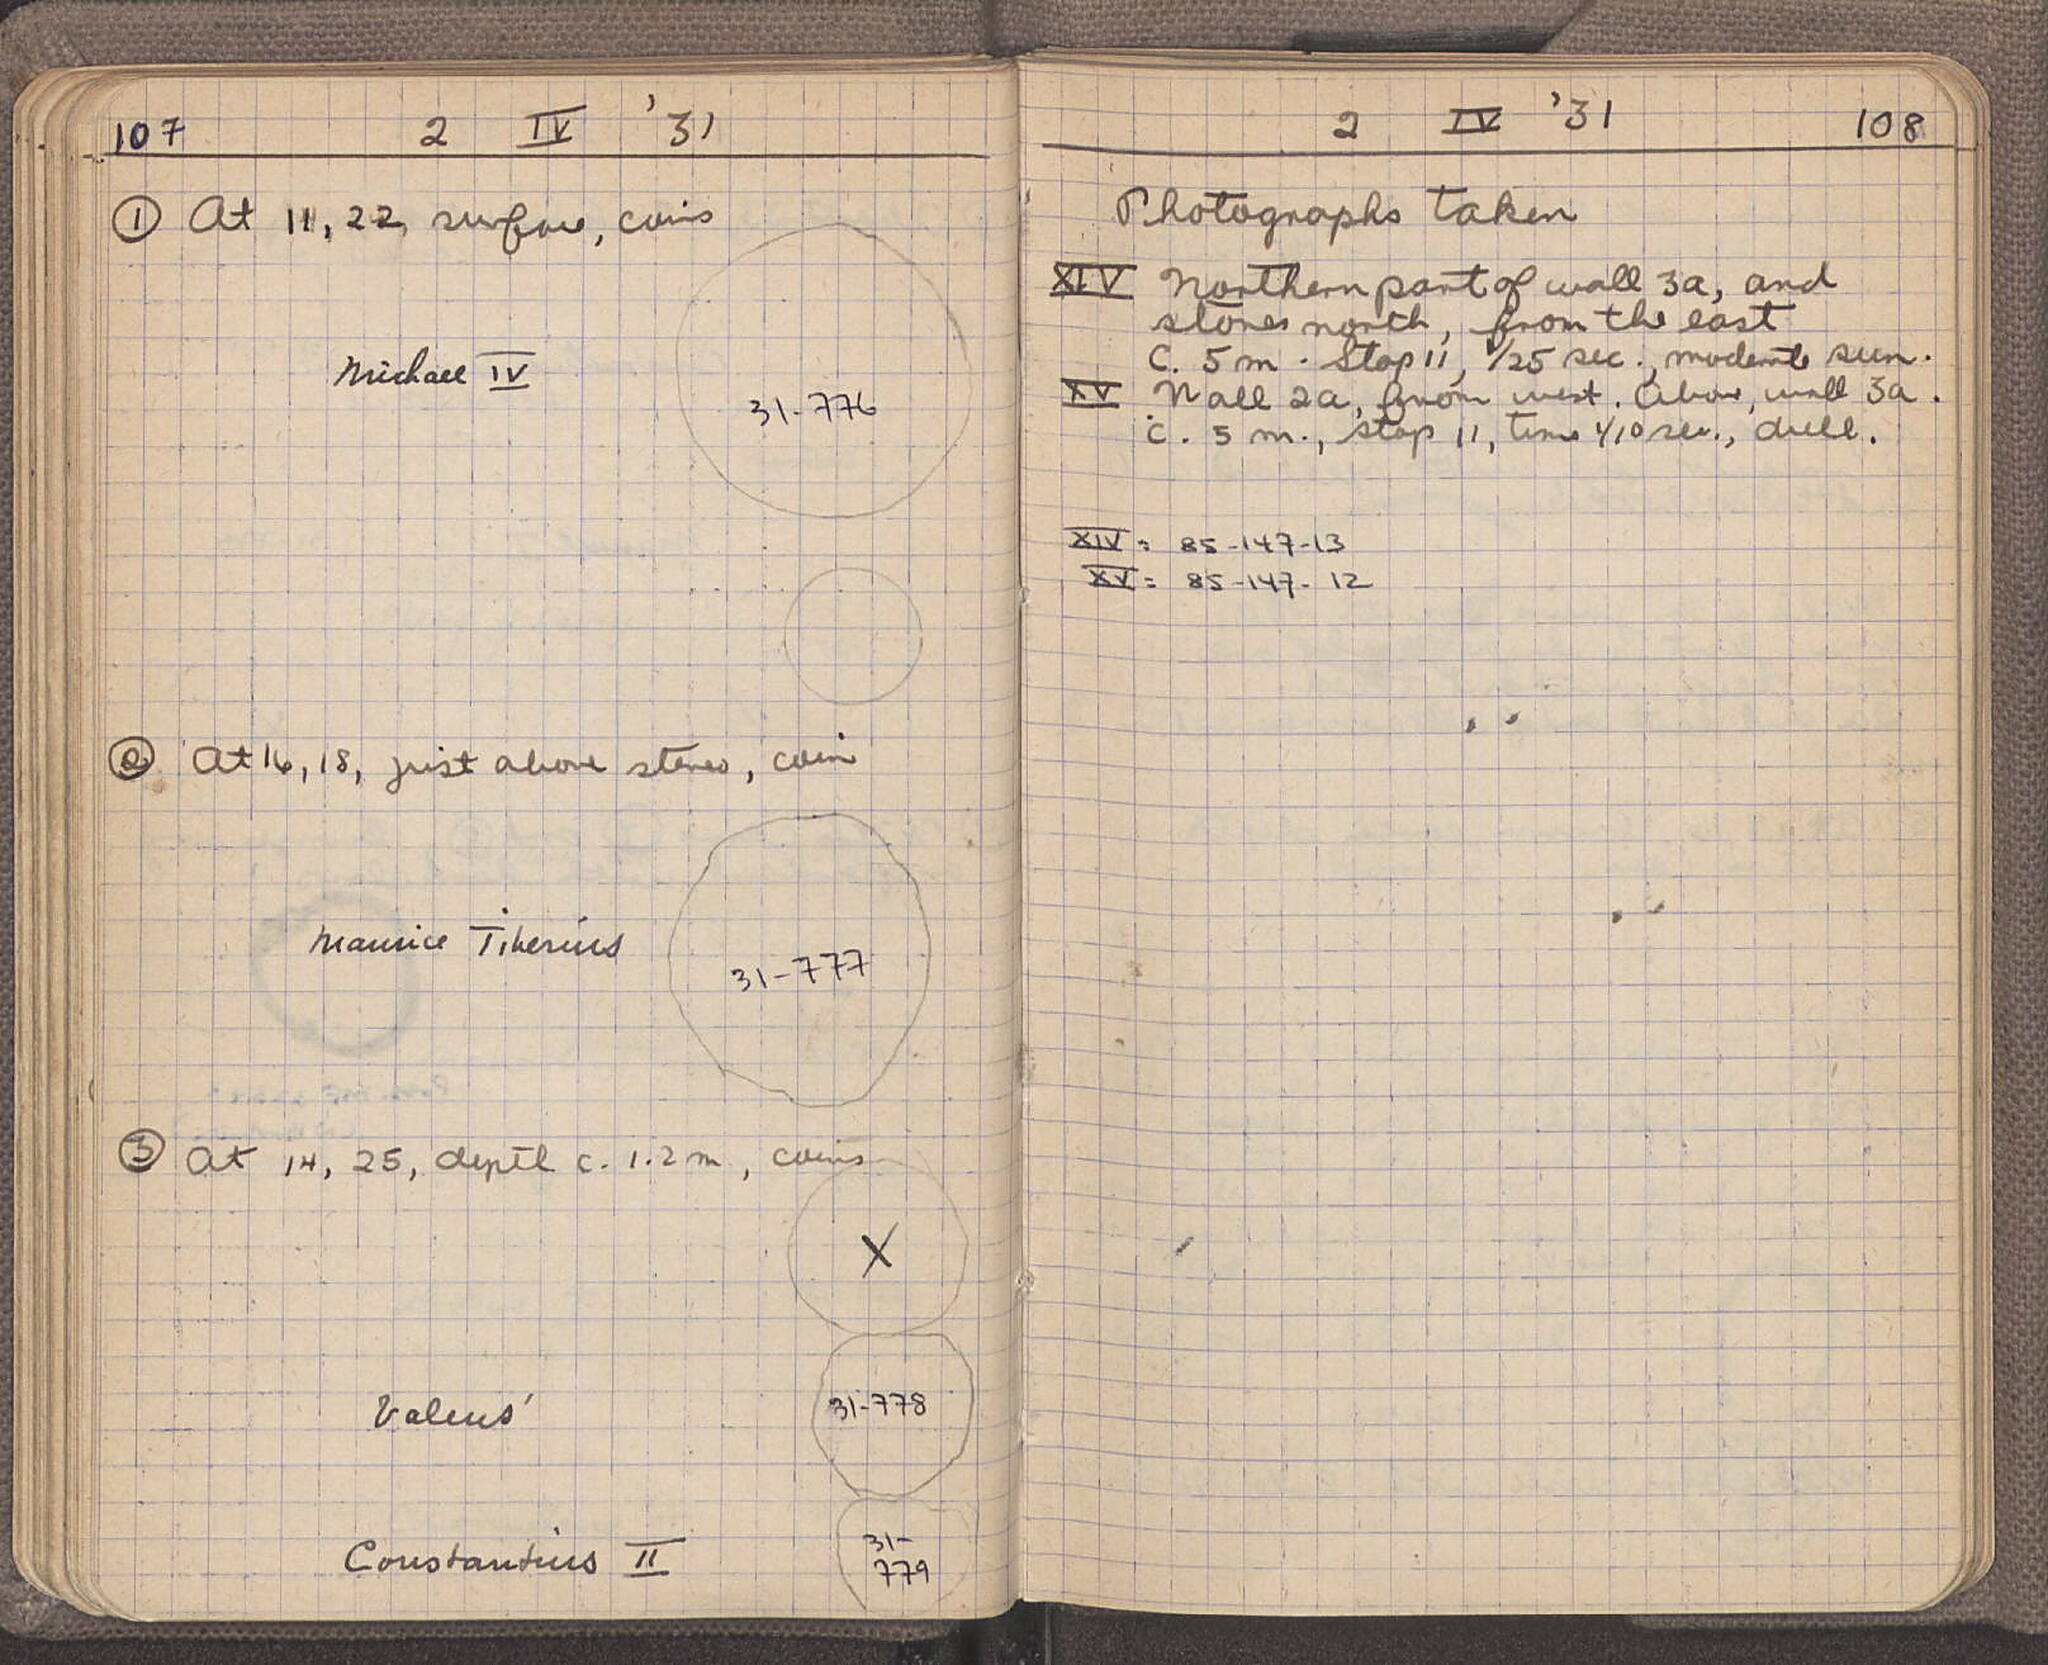 107 2 IV '31
① At 11, 22, surface, coins
Michael IV
31-776
② At 16, 18, just above stereo, coin
Maurice Tiberius
31-777
③ At 14, 25, depth c. 1.2 m, coins
X
Valens
31-778
Constantius II
31-
779
2 IV '31 108
Photographs taken
XIV Northern part of wall 3a, and
stones north, from the east
C. 5 m. Stop 11, 1/25 sec., moderate sun.
XV Wall 2a, from west. Above, wall 3a.
c. 5 m., stop 11, time 1/10 sec., dull.
XIV = 85-147-13
XV = 85-147-12